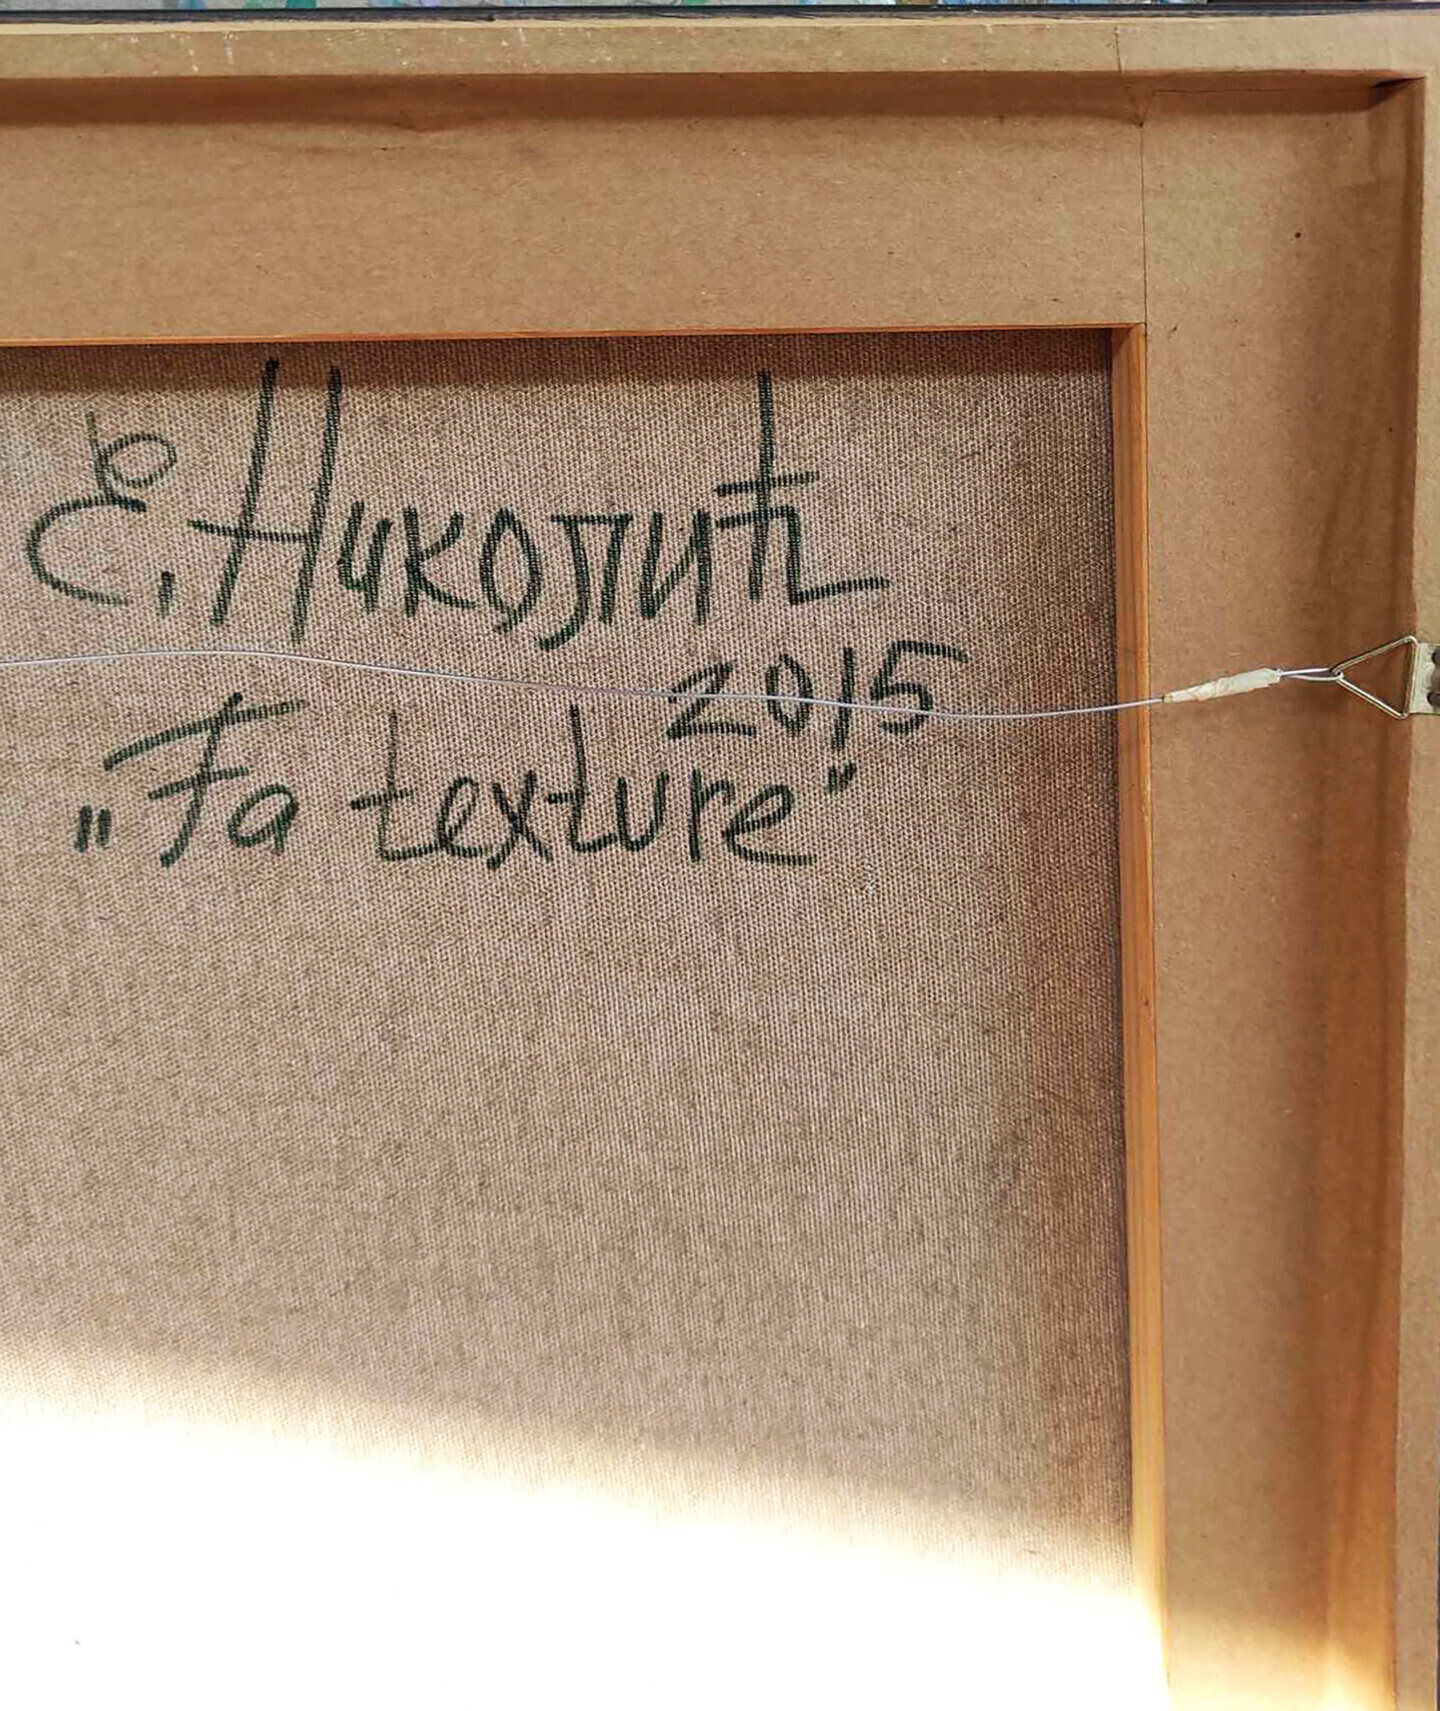 С. Николић
2015
„Fa texture"